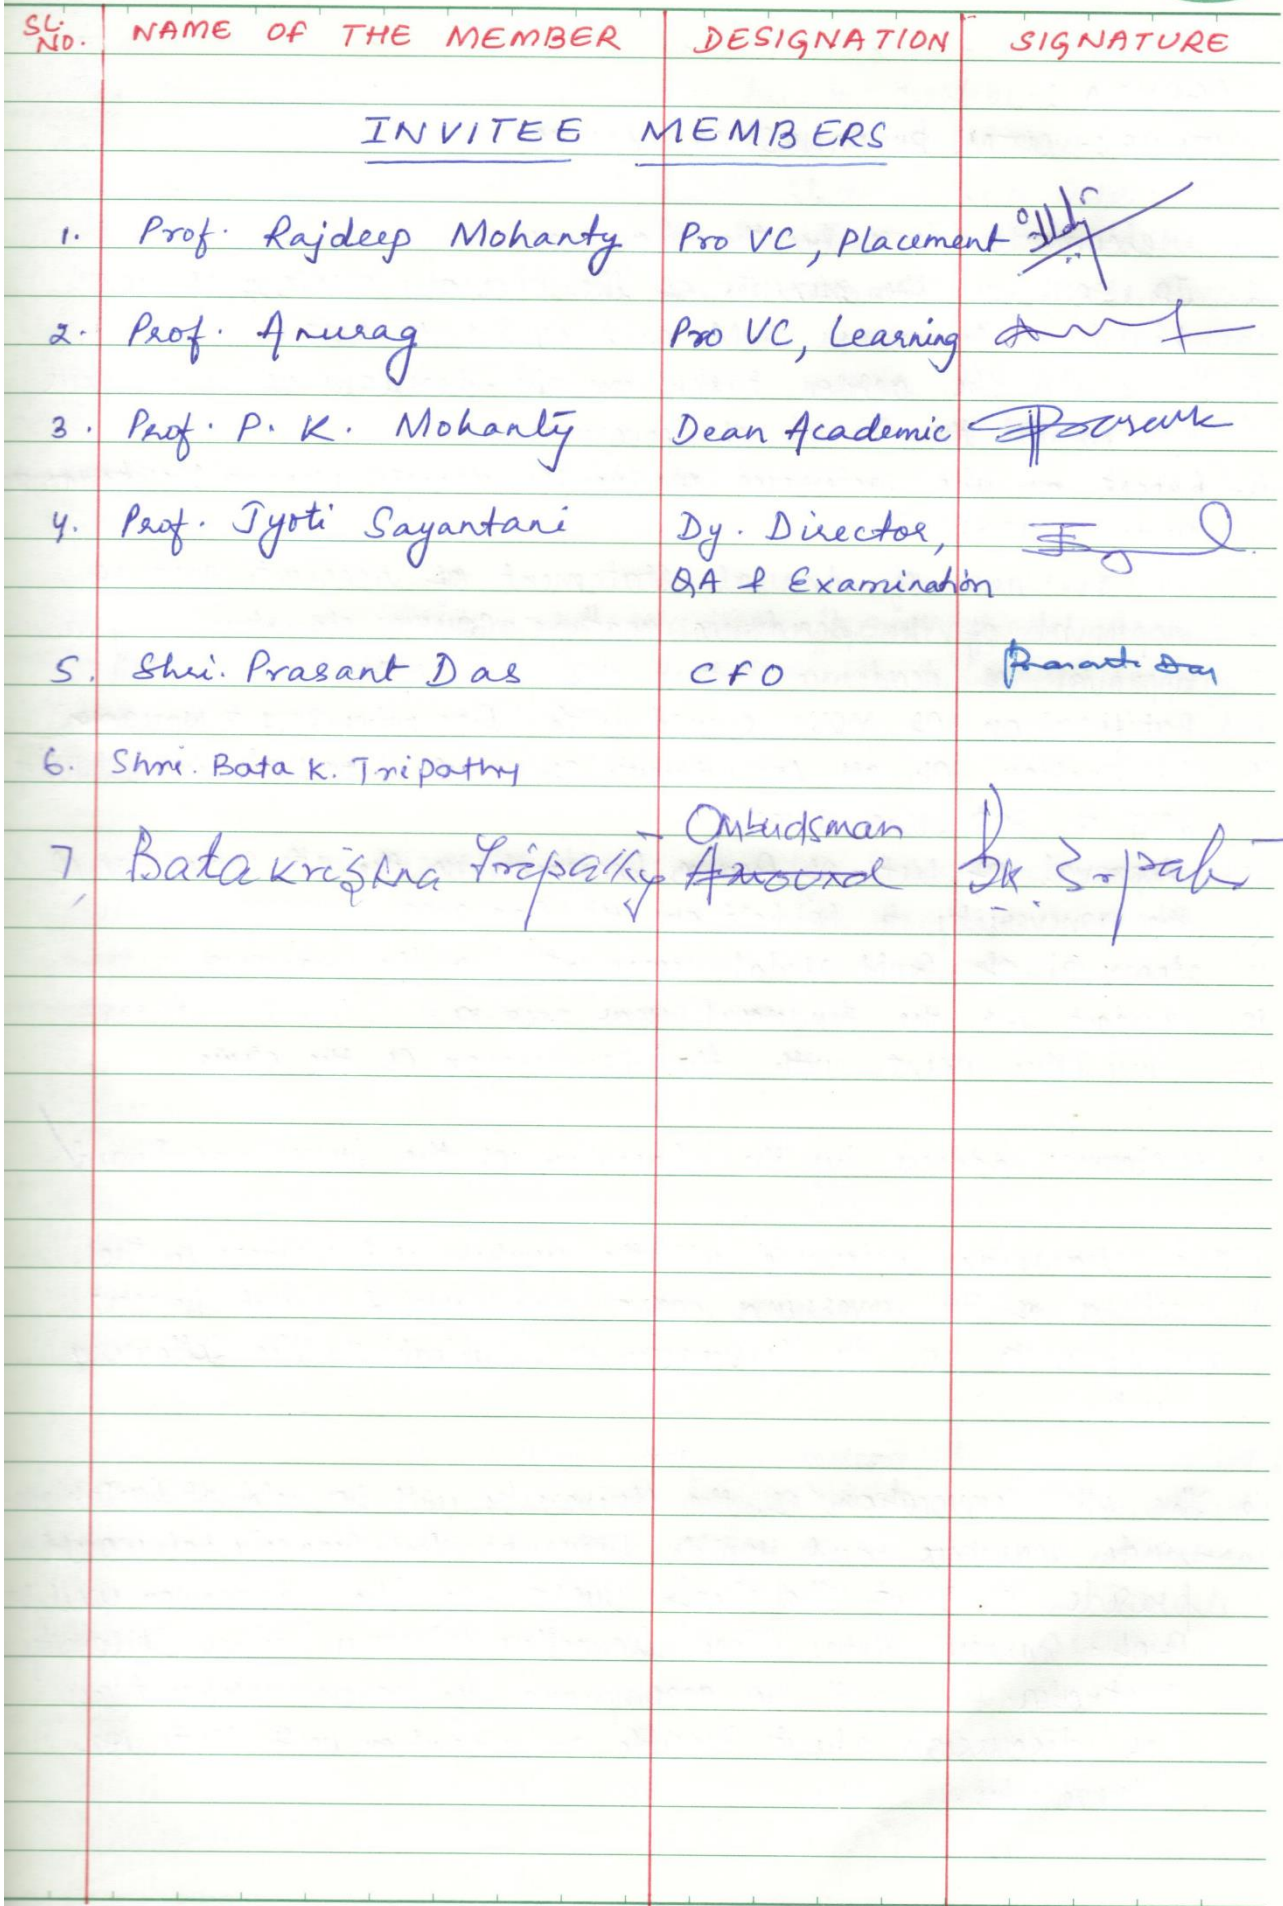 SL. NO. NAME OF THE MEMBER DESIGNATION SIGNATURE
INVITEE MEMBERS
1. Prof. Rajdeep Mohanty Pro VC, Placement
2. Prof. Anurag Pro VC, Learning
3. Prof. P. K. Mohanty Dean Academic
4. Prof. Jyoti Sayantani Dy. Director,
QA & Examination
5. Shri. Prasant Das CFO Prasant Das
6. Shri. Bata K. Tripathy
Ombudsman
7, Batakrishna Tripathy